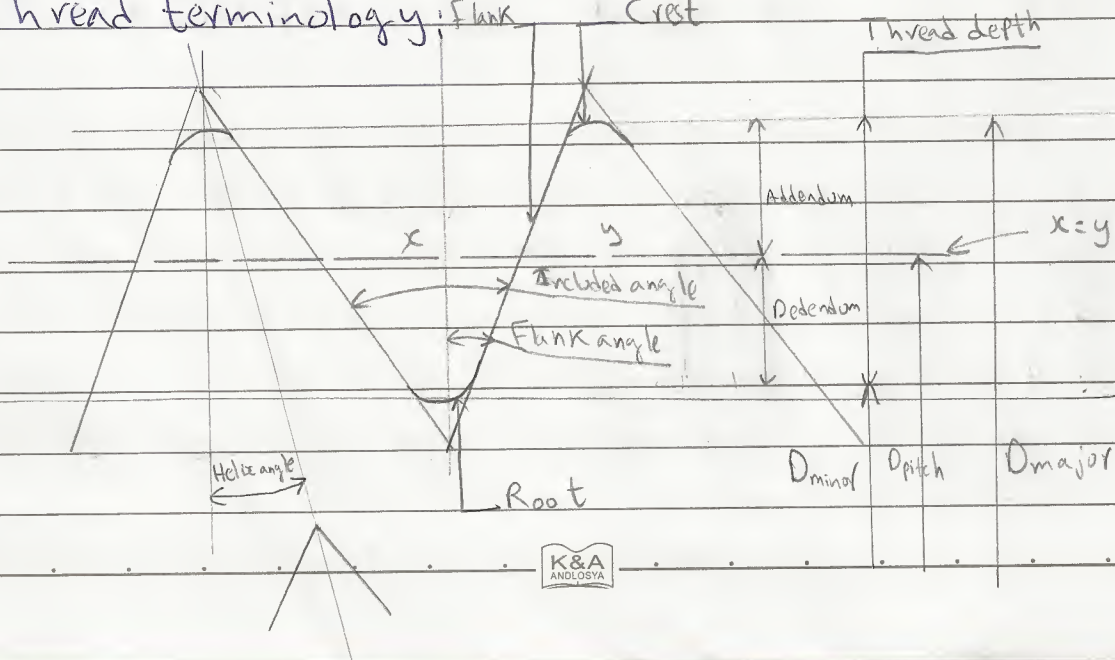 hread terminology: Flank
Crest
Thread depth
Addendum
x
y
x = y
Included angle
Dedendum
Flank angle
Helix angle
Dminor
Dpitch
Dmajor
Root
K&A
ANDLOSYA